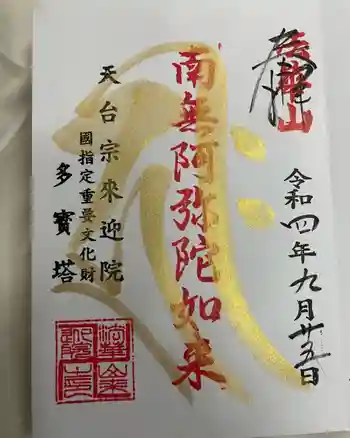 奉拝
令和四年九月廿五日
南無阿弥陀如来
天台宗來迎院
國指定重要文化財
多寳塔